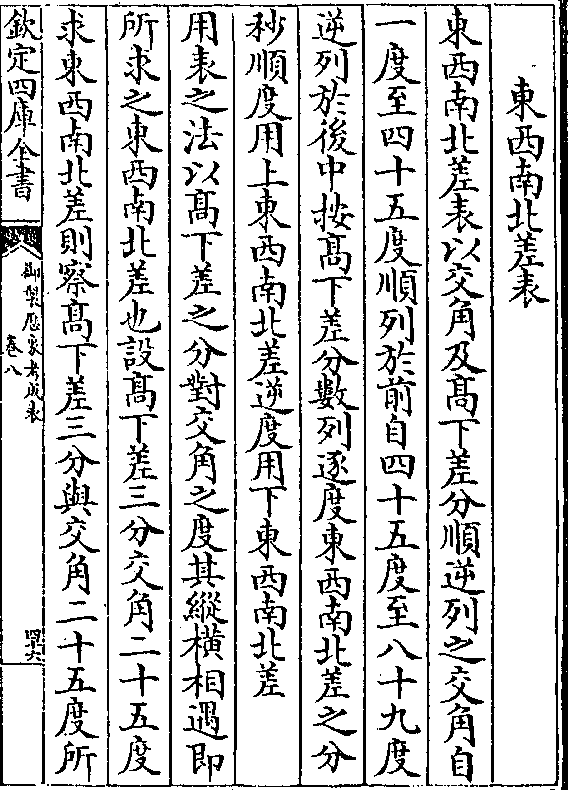 東西南北差表
東西南北差表以交角及髙下差分順逆列之交角自
一度至四十五度順列於前自四十五度至八十九度
逆列於後中按髙下差分數列逐度東西南北差之分
秒順度用上東西南北差逆度用下東西南北差
用表之法以髙下差之分對交角之度其縱橫相遇即
所求之東西南北差也設髙下差三分交角二十五度
求東西南北差則察髙下差三分與交角二十五度所
欽定四庫全書
御製厯象考成表
卷八
四六